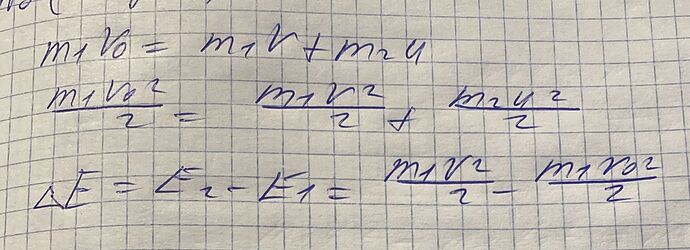 m₁v₀ = m₁v + m₂u
m₁v₀²/2 = m₁v²/2 + m₂u²/2
ΔE = E₂ - E₁ = m₁v²/2 - m₁v₀²/2